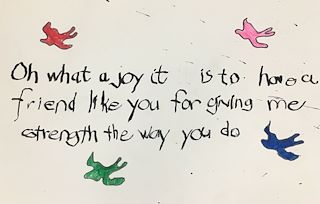 Oh what a joy it is to have a
friend like you for giving me
strength the way you do